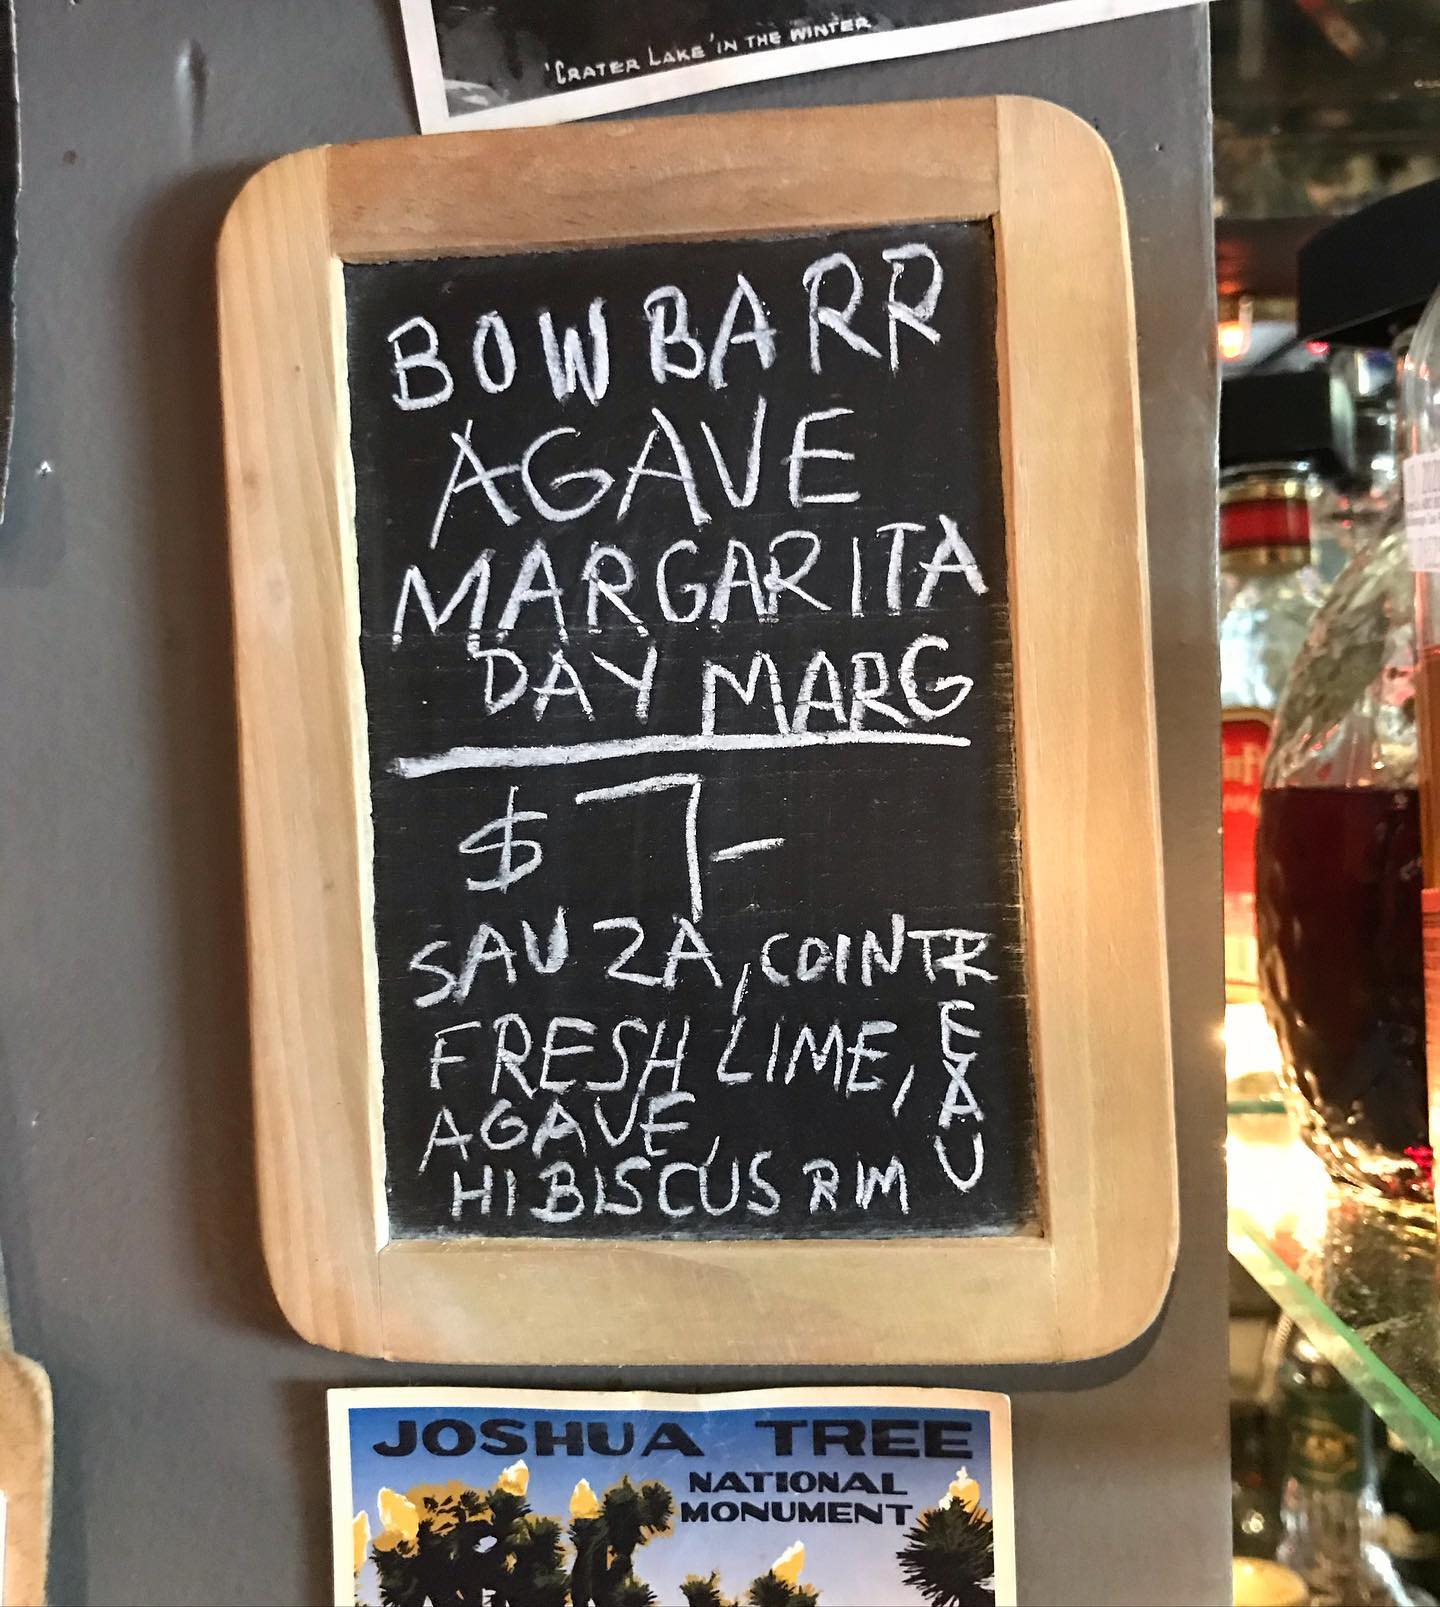 'CRATER LAKE' IN THE WINTER
BOWBARR
AGAVE
MARGARITA
DAY MARG
$7-
SAUZA, COINTREAU
FRESH LIME,
AGAVE,
HIBISCUS RIM
JOSHUA TREE
NATIONAL
MONUMENT